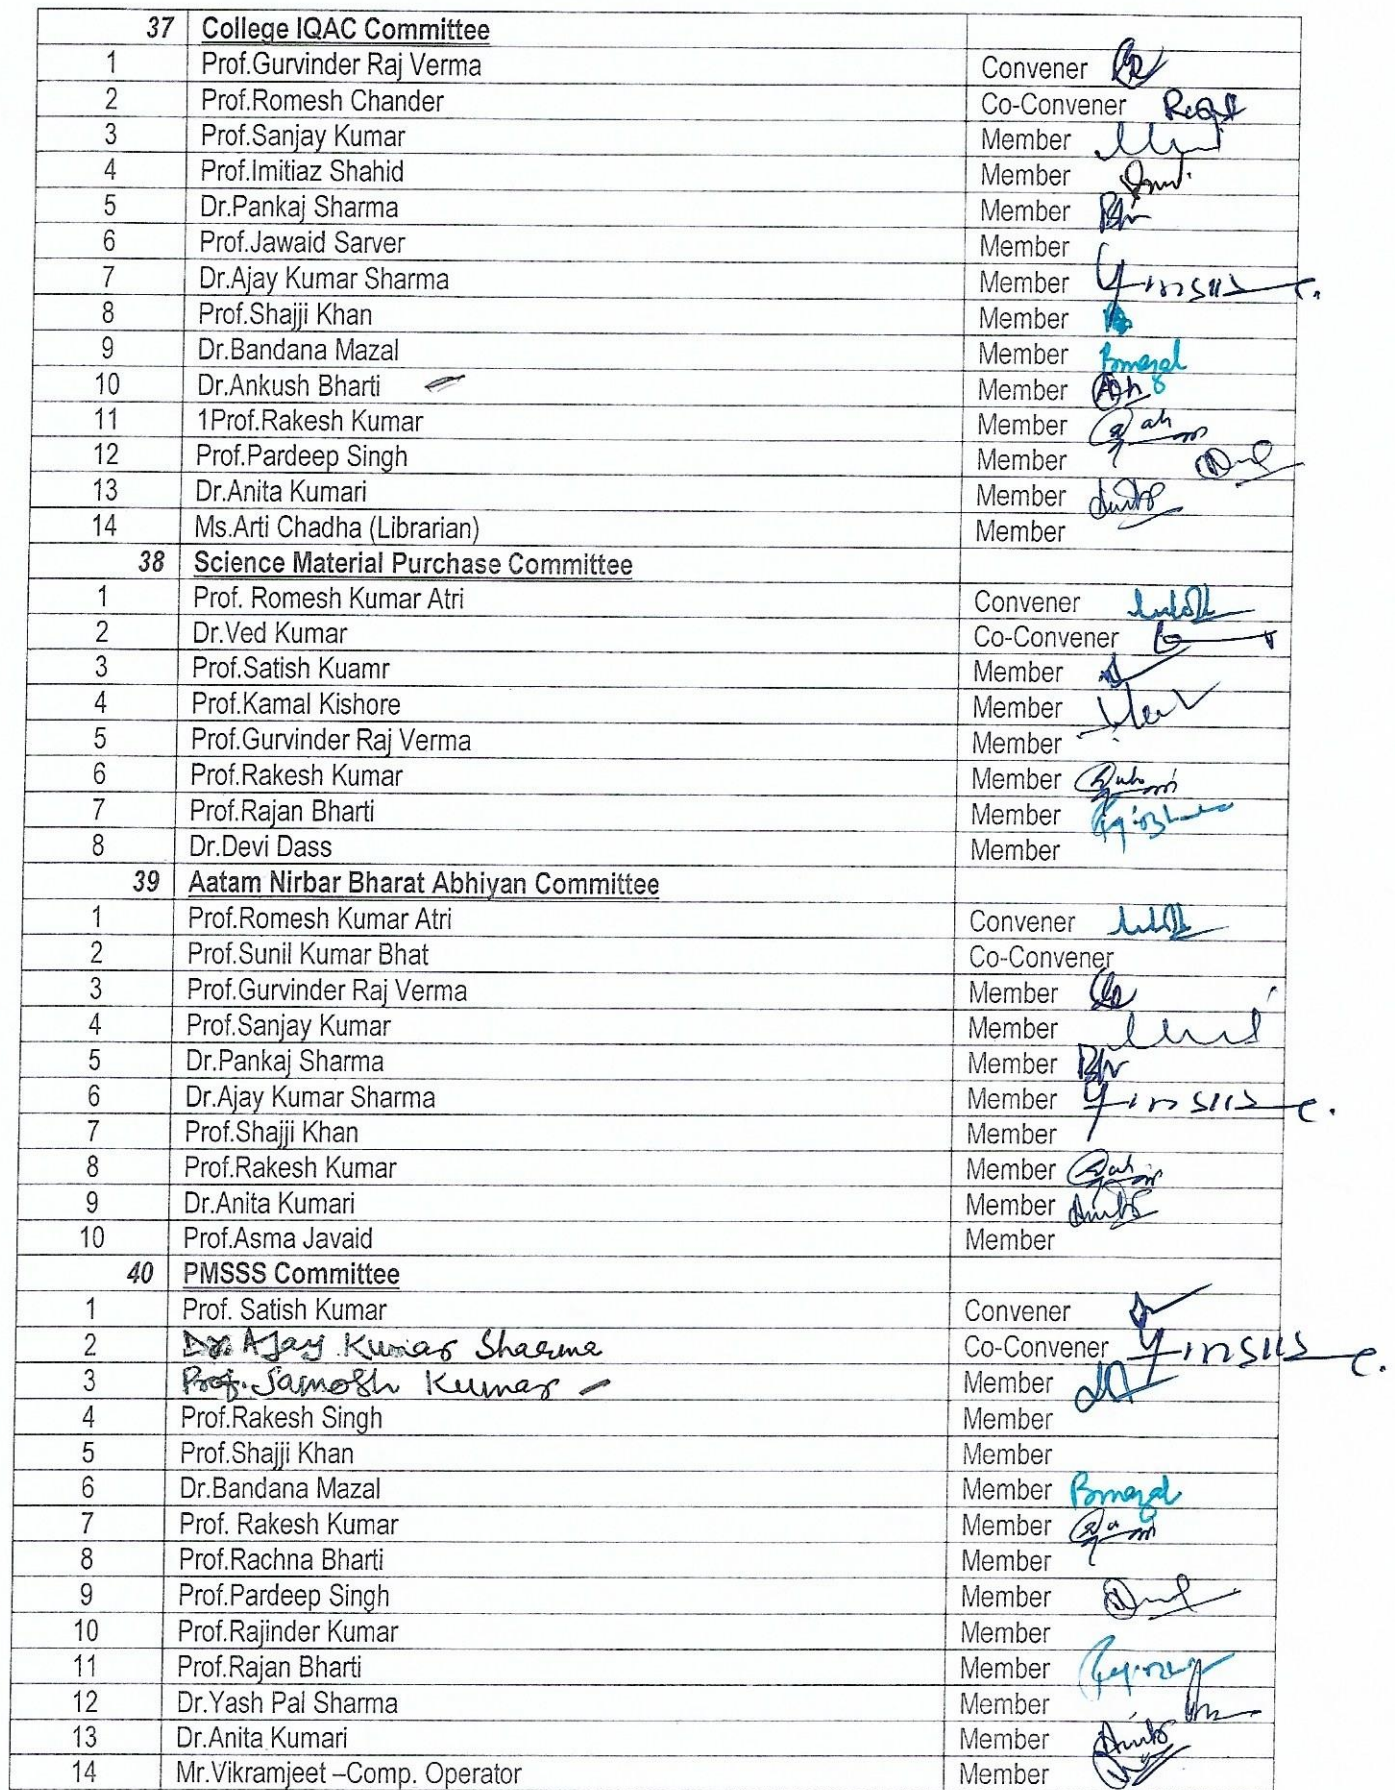 37 College IQAC Committee
1 Prof.Gurvinder Raj Verma Convener
2 Prof.Romesh Chander Co-Convener
3 Prof.Sanjay Kumar Member
4 Prof.Imitiaz Shahid Member
5 Dr.Pankaj Sharma Member
6 Prof.Jawaid Sarver Member
7 Dr.Ajay Kumar Sharma Member
8 Prof.Shajji Khan Member
9 Dr.Bandana Mazal Member Bmazal
10 Dr.Ankush Bharti Member
11 1Prof.Rakesh Kumar Member
12 Prof.Pardeep Singh Member
13 Dr.Anita Kumari Member
14 Ms.Arti Chadha (Librarian) Member
38 Science Material Purchase Committee
1 Prof. Romesh Kumar Atri Convener
2 Dr.Ved Kumar Co-Convener
3 Prof.Satish Kuamr Member
4 Prof.Kamal Kishore Member
5 Prof.Gurvinder Raj Verma Member
6 Prof.Rakesh Kumar Member
7 Prof.Rajan Bharti Member
8 Dr.Devi Dass Member
39 Aatam Nirbar Bharat Abhiyan Committee
1 Prof.Romesh Kumar Atri Convener
2 Prof.Sunil Kumar Bhat Co-Convener
3 Prof.Gurvinder Raj Verma Member
4 Prof.Sanjay Kumar Member
5 Dr.Pankaj Sharma Member
6 Dr.Ajay Kumar Sharma Member
7 Prof.Shajji Khan Member
8 Prof.Rakesh Kumar Member
9 Dr.Anita Kumari Member
10 Prof.Asma Javaid Member
40 PMSSS Committee
1 Prof. Satish Kumar Convener
2 Dr. Ajay Kumar Sharma Co-Convener
3 Prof. Kumar Member
4 Prof.Rakesh Singh Member
5 Prof.Shajji Khan Member
6 Dr.Bandana Mazal Member Bmazal
7 Prof. Rakesh Kumar Member
8 Prof.Rachna Bharti Member
9 Prof.Pardeep Singh Member
10 Prof.Rajinder Kumar Member
11 Prof.Rajan Bharti Member
12 Dr.Yash Pal Sharma Member
13 Dr.Anita Kumari Member
14 Mr.Vikramjeet –Comp. Operator Member